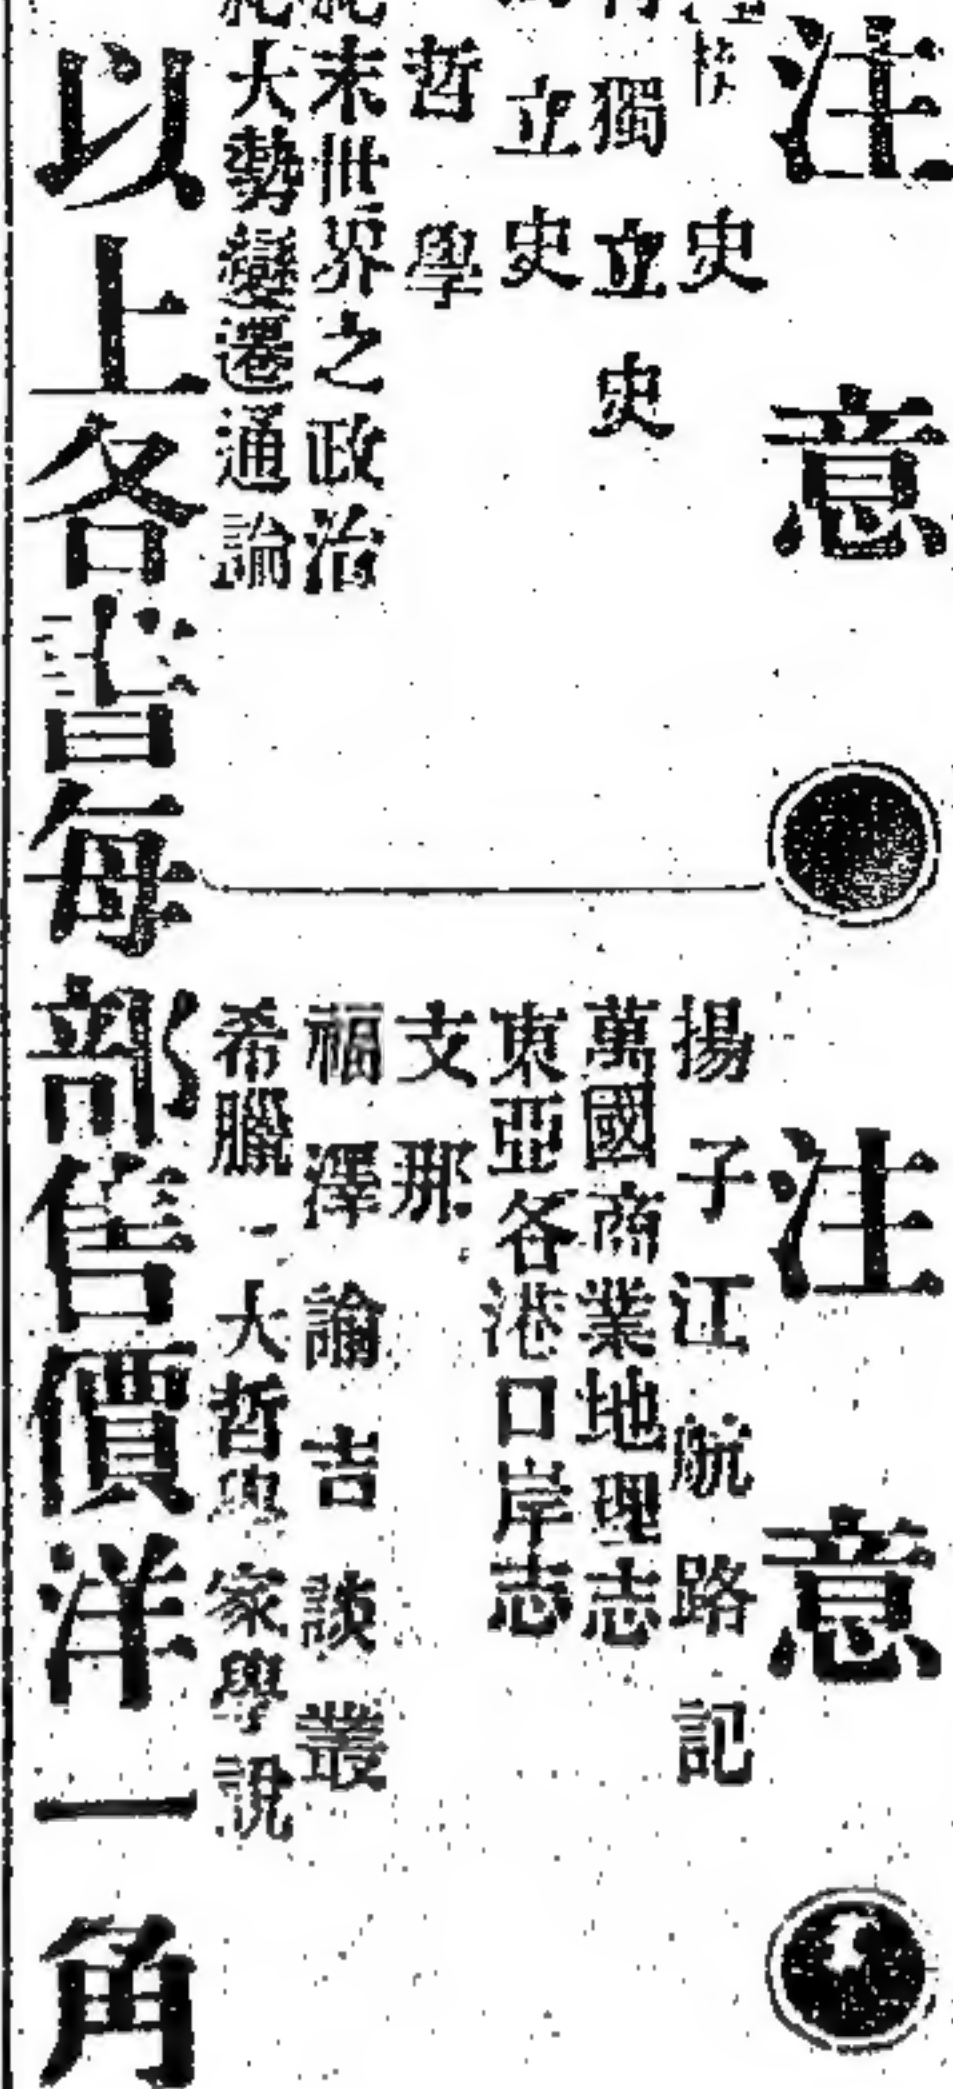 注意●注意●
史
獨立史
立史
哲學
末世界之政治
大勢變遷通論
揚子江航路記
萬國商業地理志
東亞各港口岸志
支那
福澤諭吉談叢
希臘二大哲學家學說
以上各書每部售價洋一角